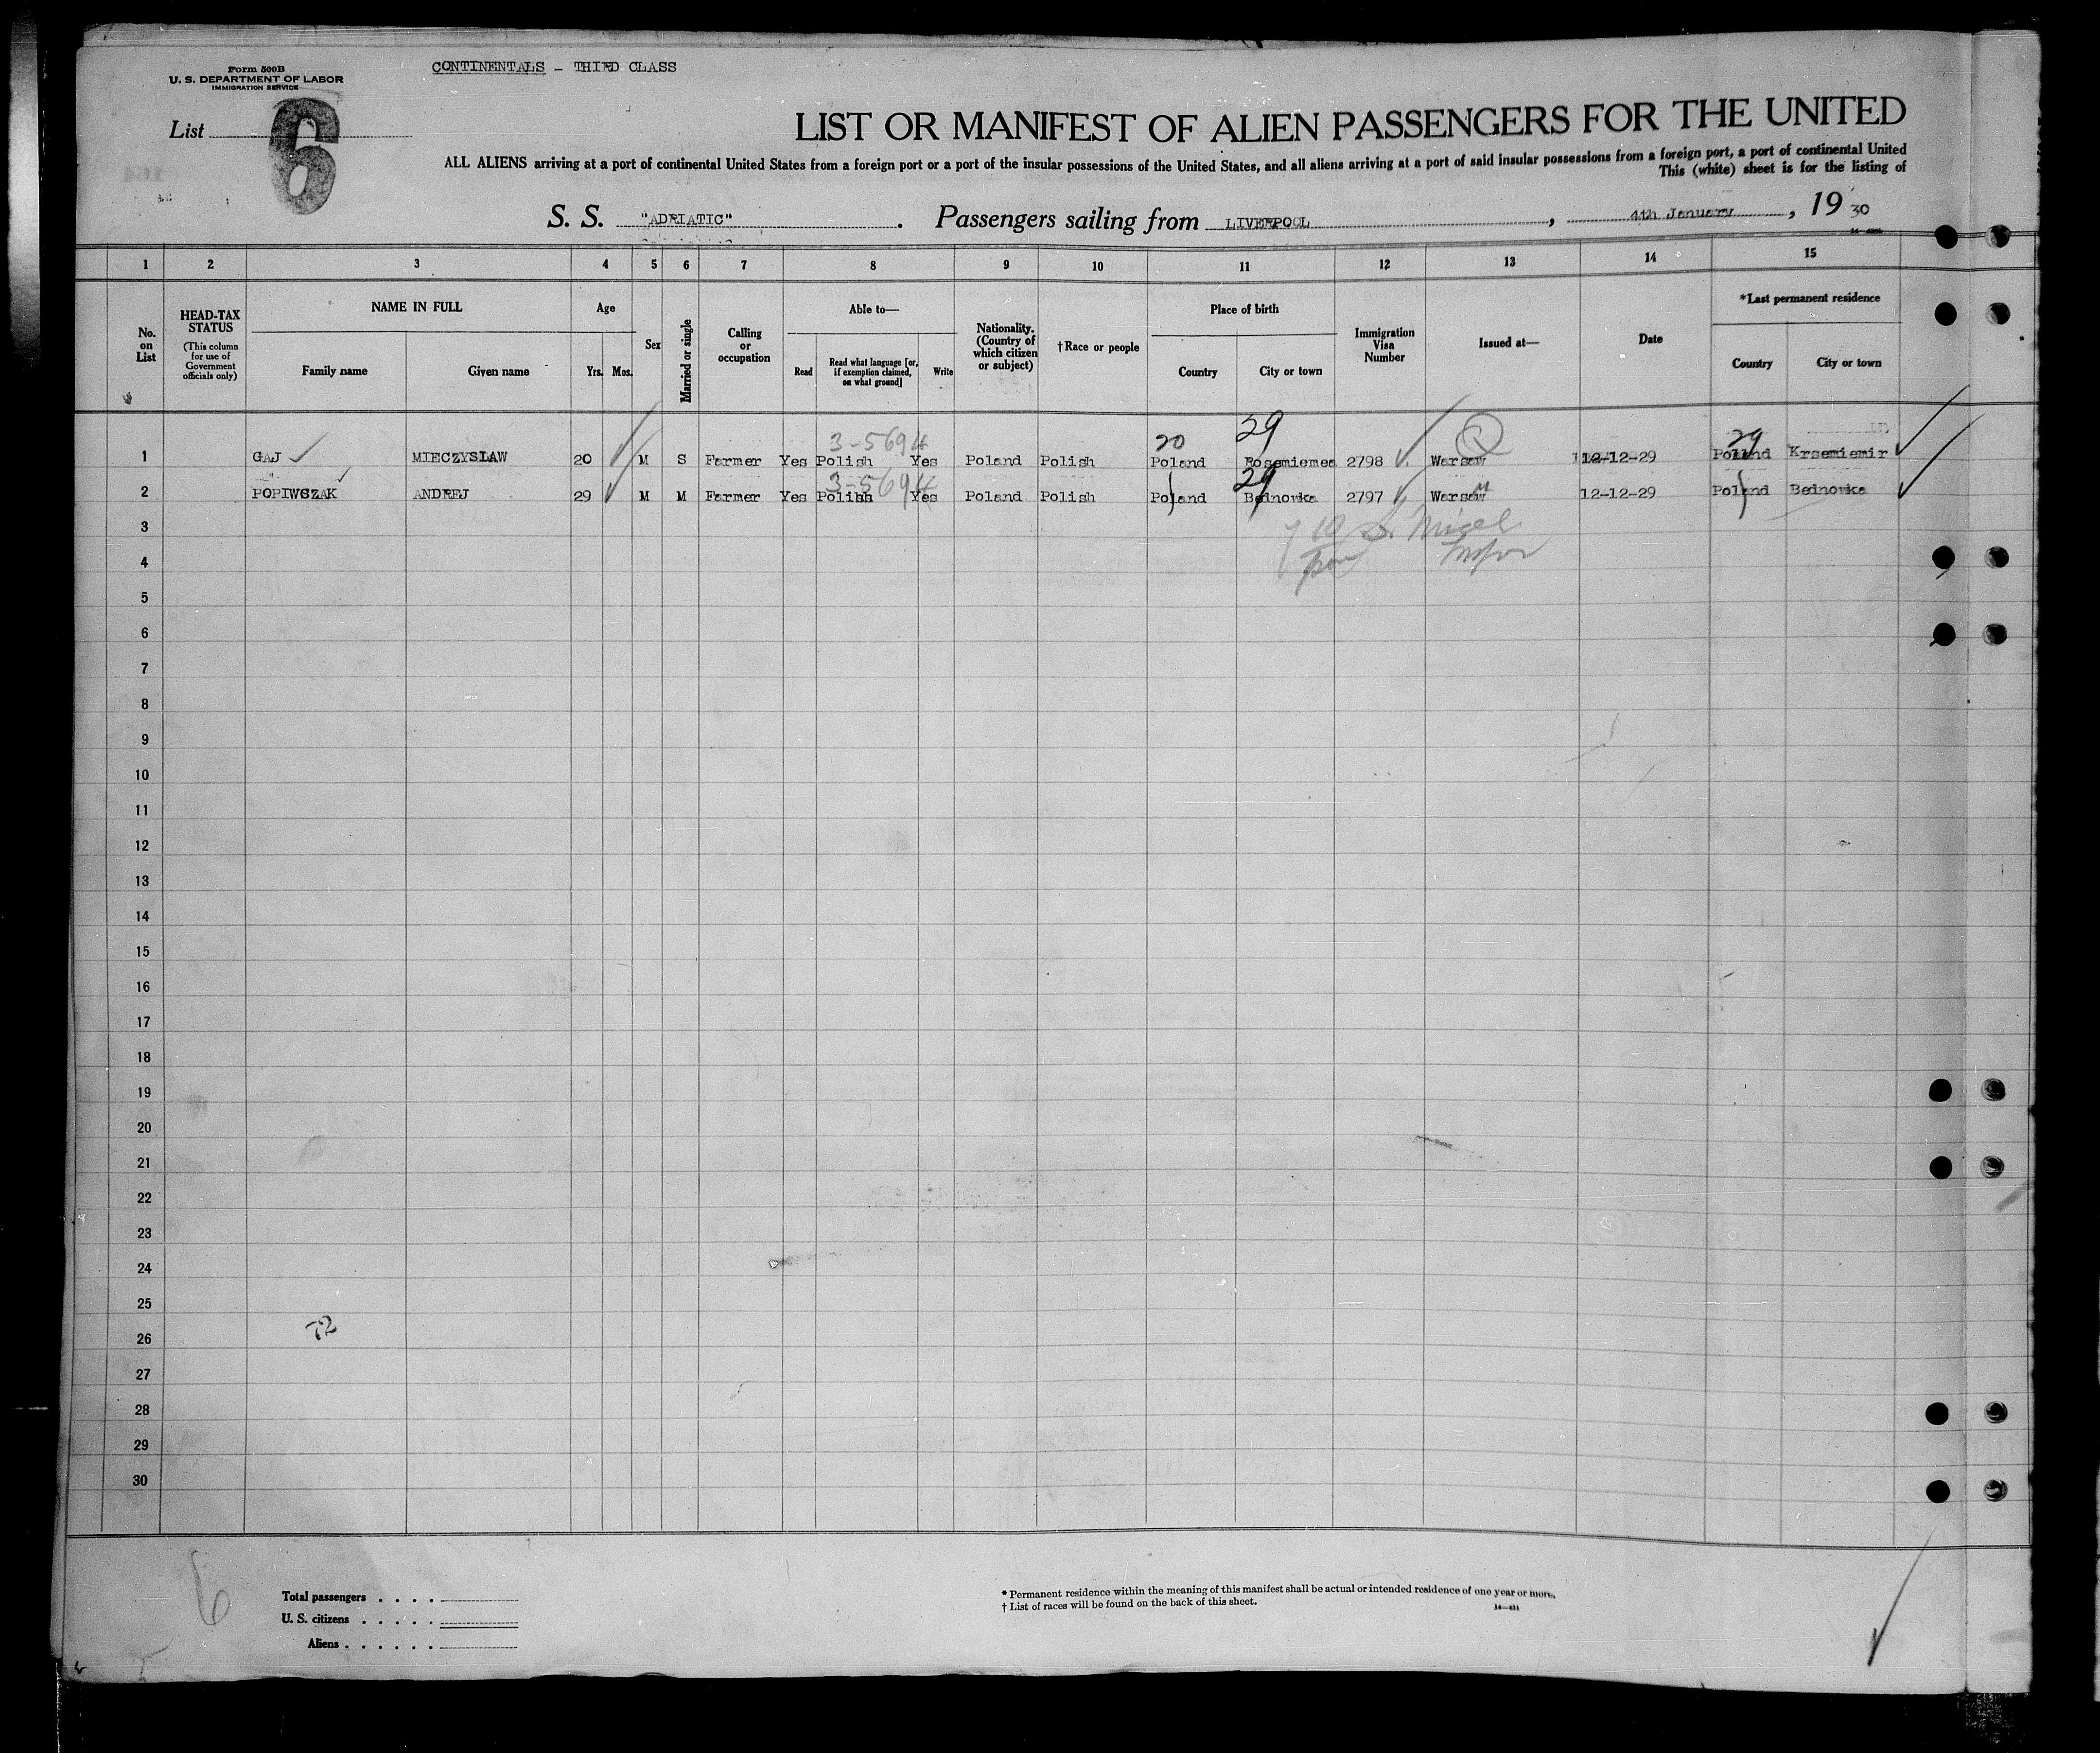 Form 500B
U. S. DEPARTMENT OF LABOR
IMMIGRATION SERVICE
CONTINENTALS - THIRD CLASS
List 6
LIST OR MANIFEST OF ALIEN PASSENGERS FOR THE UNITED
ALL ALIENS arriving at a port of continental United States from a foreign port or a port of the insular possessions of the United States, and all aliens arriving at a port of said insular possessions from a foreign port, a port of continental United
This (white) sheet is for the listing of
S. S. "ADRIATIC". Passengers sailing from LIVERPOOL, 4th January, 19 30
1 2 3 4 5 6 7 8 9 10 11 12 13 14 15
No. on List
HEAD-TAX STATUS
(This column for use of Government officials only)
NAME IN FULL
Family name Given name
Age
Yrs. Mos.
Sex
Married or single
Calling or occupation
Able to—
Read Read what language [or, if exemption claimed, on what ground] Write
Nationality. (Country of which citizen or subject)
†Race or people
Place of birth
Country City or town
Immigration Visa Number
Issued at—
Date
*Last permanent residence
Country City or town
3-5694 20 29 29
1 GAJ MIECZYSLAW 20 M S Farmer Yes Polish Yes Poland Polish Poland 2798 Warsaw 12-12-29 Poland Krsemiemir
3-5694 29
2 POPIWSZAK ANDREJ 29 M M Farmer Yes Polish Yes Poland Polish Poland Bednowka 2797 Warsaw 12-12-29 Poland Bednowka
3
4
5
6
7
8
9
10
11
12
13
14
15
16
17
18
19
20
21
22
23
24
25
26
72
27
28
29
30
6
Total passengers . . . .
U. S. citizens . . . . .
Aliens . . . . . .
* Permanent residence within the meaning of this manifest shall be actual or intended residence of one year or more.
† List of races will be found on the back of this sheet.